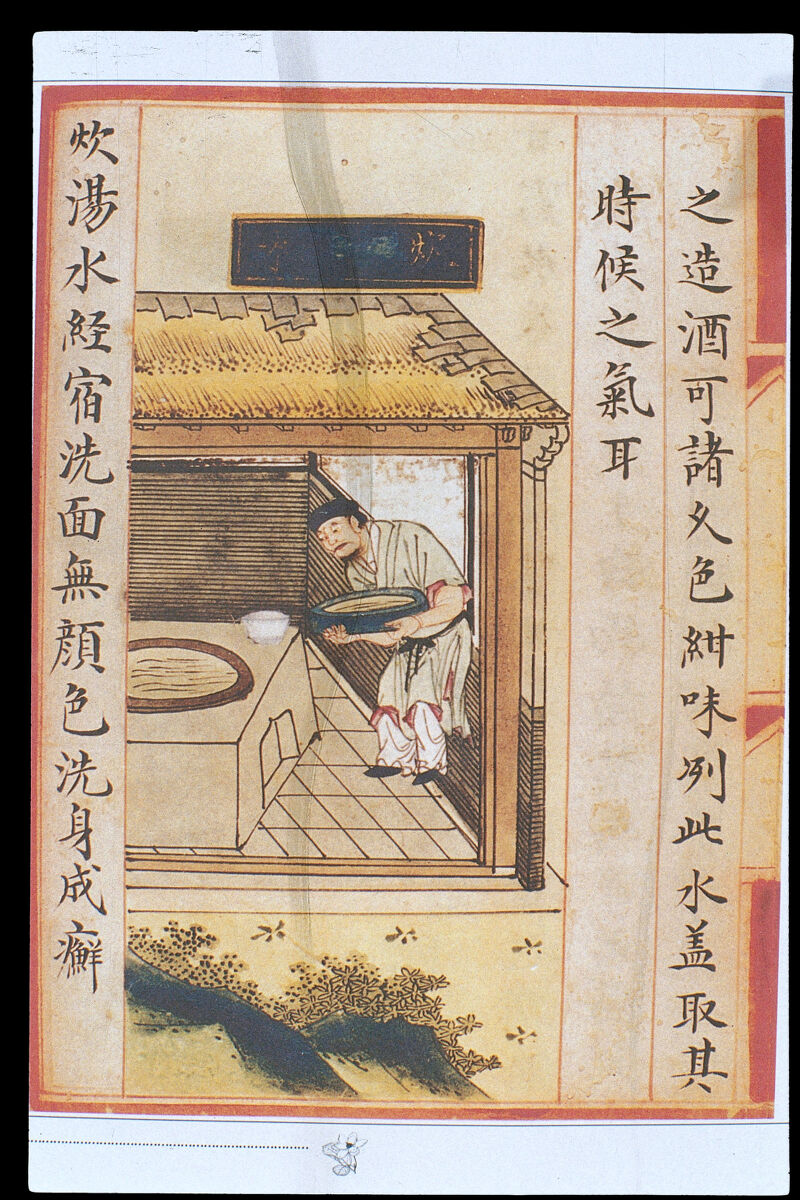 之造酒可諸久色紺味冽此水盖取其
時候之氣耳
炊
炊湯水経宿洗面無顔色洗身成癬